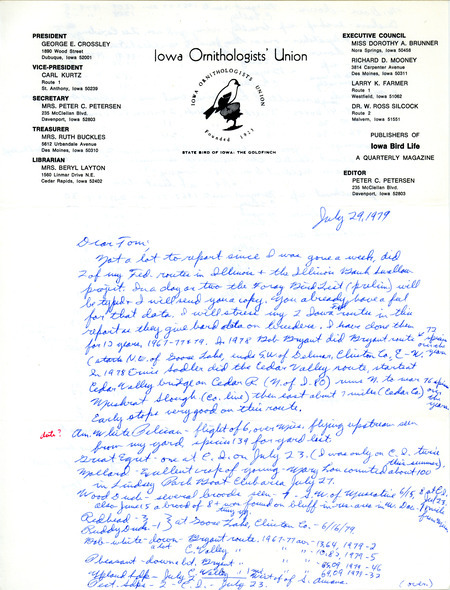 PRESIDENT
GEORGE E. CROSSLEY
1890 Wood Street
Dubuque, Iowa 52001
VICE-PRESIDENT
CARL KURTZ
Route 1
St. Anthony, Iowa 50239
SECRETARY
MRS. PETER C. PETERSEN
235 McClellan Blvd.
Davenport, Iowa 52803
TREASURER
MRS. RUTH BUCKLES
5612 Urbandale Avenue
Des Moines, Iowa 50310
LIBRARIAN
MRS. BERYL LAYTON
1560 Linmar Drive N.E.
Cedar Rapids, Iowa 52402
Iowa Ornithologists' Union
IOWA ORNITHOLOGISTS UNION
Founded 1923
STATE BIRD OF IOWA: THE GOLDFINCH
EXECUTIVE COUNCIL
MISS DOROTHY A. BRUNNER
Nora Springs, Iowa 50458
RICHARD D. MOONEY
3814 Carpenter Avenue
Des Moines, Iowa 50311
LARRY K. FARMER
Route 1
Westfield, Iowa 51062
DR. W. ROSS SILCOCK
Route 2
Malvern, Iowa 51551
PUBLISHERS OF
Iowa Bird Life
A QUARTERLY MAGAZINE
EDITOR
PETER C. PETERSEN
235 McClellan Blvd.
Davenport, Iowa 52803
July 29, 1979
Dear Tom:
Not a lot to report since I was gone a week, did
2 of my Fed. routes in Illinois & the Illinois Bank Swallow
project. In a day or two the Foray Bird List (prelim) will
be typed & I will send you a copy. You already have a ful
for that data. I will stress my 2 Iowa Fed routes in this
report as they give hard data on numbers. I have done them
for 13 years, 1967-77 & 79. In 1978 Bob Bryant did Bryant route
(starts N.W. of Goose Lake, ends S.W. of Delmar, Clinton Co, E-W.
In 1978 Ernie Sadler did the Cedar Valley route, starts at
Cedar Valley bridge on Cedar R. runs N. to near
Muskrat Slough (Co. line) then east about 7 miles (Cedar Co)
Early stops very good on this route.
date?
Am. White Pelican - flight of 6, over Miss. flying upstream seen
from my yard, species 139 for yard list.
Great Egret - one at C.D. on July 23. (I was only on C.D. twice
this summer).
Mallard - Excellent crop of young - Mary Lou counted about 100
in Lindsay Park Boat Club area July 27.
Wood Duck - several broods seen
also June 15 a brood of 8 was found on bluff in res. area in
Redhead - 2
Ruddy Duck - 3 at Goose Lake, Clinton Co. - 6/16/79
Bob-white - down - Bryant route, 1967-77 av - 13.64, 1979 - 2
C. Valley " " " - 10.82, 1979 - 5
Pheasant - down a bit, Bryant " " - 1979 - 46
1979 - 32
Pect. Sdps - 2 - C.D. - July 23.
(over)